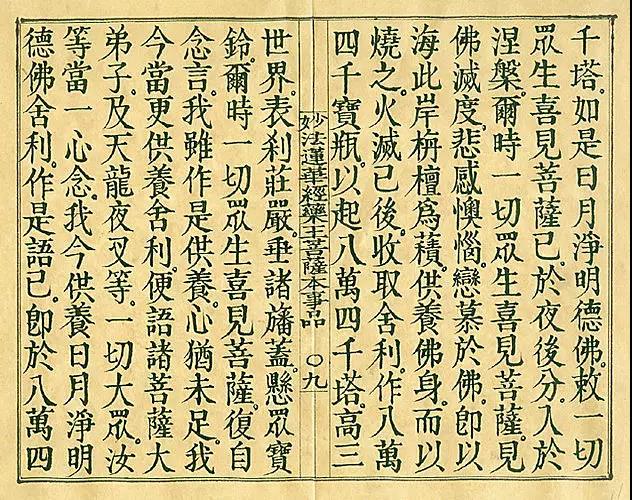 千塔。如是日月淨明德佛。敕一切
眾生喜見菩薩已。於夜後分。入於
涅槃。爾時一切眾生喜見菩薩。見
佛滅度。悲感懊惱。戀慕於佛。卽以
海此岸栴檀爲𧂐。供養佛身。而以
燒之。火滅已後。收取舍利。作八萬
四千寶瓶。以起八萬四千塔。高三
妙法蓮華經藥王菩薩本事品 〇九
世界。表剎莊嚴。垂諸旛蓋。懸眾寶
鈴。爾時一切眾生喜見菩薩。復自
念言。我雖作是供養。心猶未足。我
今當更供養舍利。便語諸菩薩大
弟子。及天龍夜叉等。一切大眾。汝
等當一心念。我今供養日月淨明
德佛舍利。作是語已。卽於八萬四